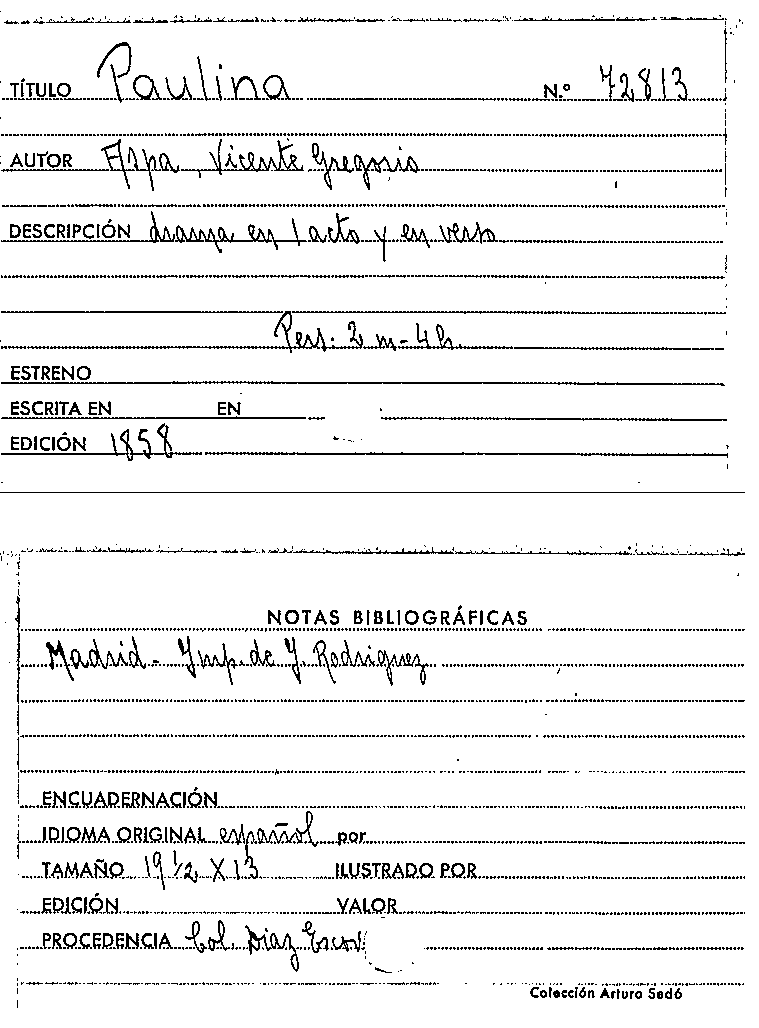 TÍTULO Paulina N.º 72813
AUTOR Aspa, Vicente Gregorio
DESCRIPCIÓN drama en 1 acto y en verso
Pers: 2 m - 4 h.
ESTRENO
ESCRITA EN EN
EDICIÓN 1858
NOTAS BIBLIOGRÁFICAS
Madrid - Imp. de J. Rodriguez
ENCUADERNACIÓN
IDIOMA ORIGINAL español por
TAMAÑO 19 1/2 X 13 ILUSTRADO POR
EDICIÓN VALOR
PROCEDENCIA Col. Diaz Escov
Colección Arturo Sedó